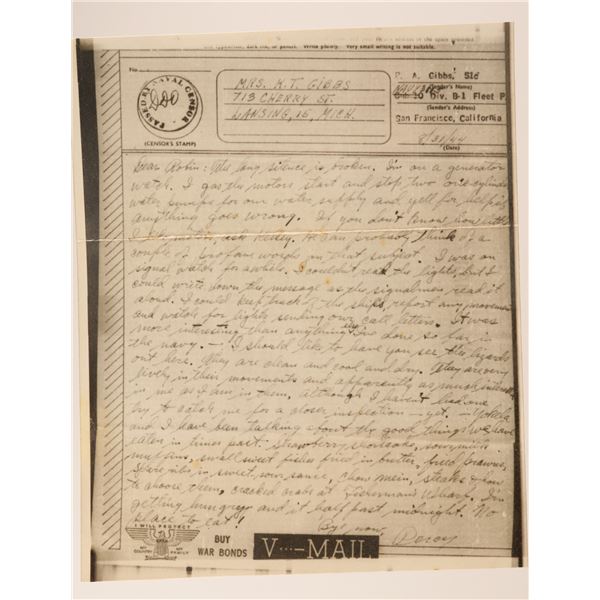 not is not suitable. Write plainly. Very small writing is not suitable.
No.
PASSED BY NAVAL CENSOR
(CENSOR'S STAMP)
MRS. H.T. GIBBS
713 CHERRY ST.
LANSING, 15, MICH.
P. A. Gibbs, S1c
(Sender's Name)
Div. B-1 Fleet P
(Sender's Address)
San Francisco, California
8/31/44
(Date)
Dear Robin: The long silence is broken. I'm on a generator
watch. I gas the motors start and stop two one-cylinder
water pumps for our water supply and yell for help if
anything goes wrong. If you don't know how little
I like motors, ask Kelley. He can probably think of a
couple of profane words on that subject. I was on
signal watch for awhile. I couldn't read the lights, but I
could write down the message as the signalman read it
aloud. I could keep track of the ships, report any movement
and watch for lights sending our call letters. It was
more interesting than anything else I've done so far in
the navy. — I should like to have you see the lizards
out here. They are clean and cool and dry. They are very
lively in their movements and apparently as much interested
in me as I am in them, although I haven't had one
try to catch me for a closer inspection — yet. —
and I have been talking about the good things we have
eaten in times past. Strawberry shortcake, sour milk
muffins, small sweet fishes fried in butter, fried prawns,
spare ribs in sweet, sour sauce, chow mein, steaks & how
to choose them, cracked crabs at Fisherman's Wharf. I'm
getting hungry and it half past midnight. No
place to eat!
Bye now,
Percy
I WILL PROTECT
MY COUNTRY
MY FAMILY
BUY
WAR BONDS
V···—MAIL